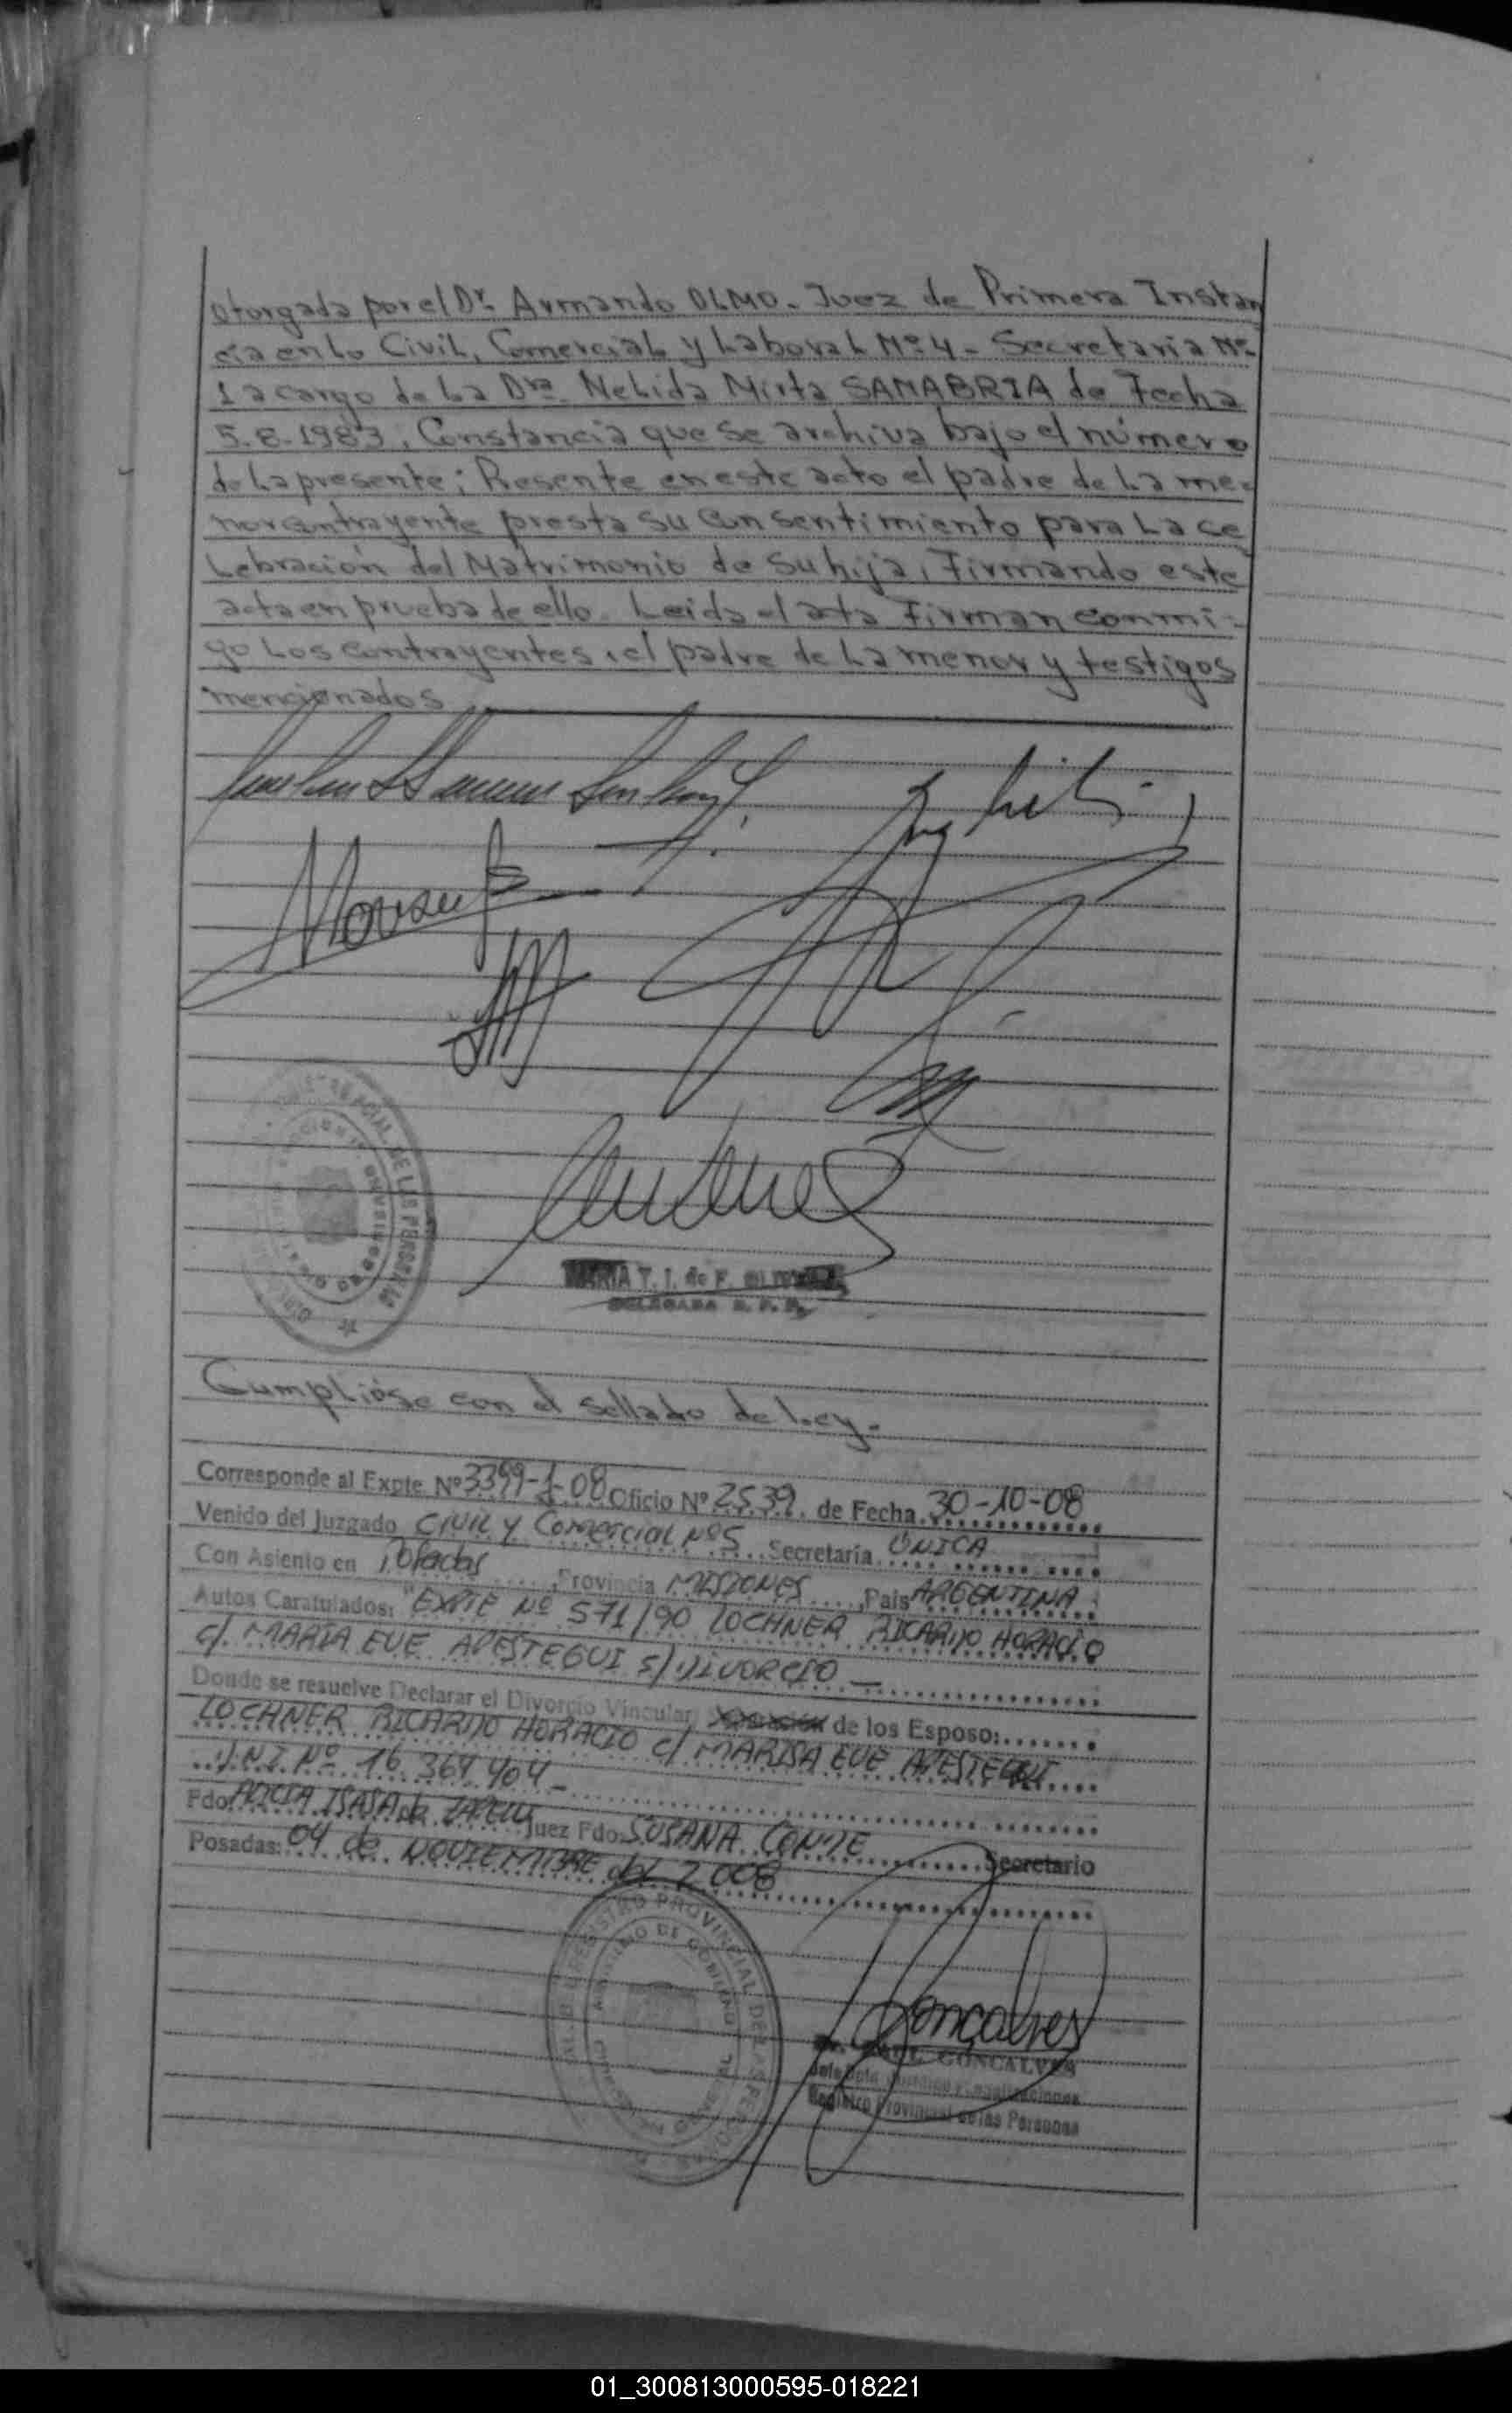 otorgada por el Dr. Armando OLMO - Juez de Primera Instan
cia en lo Civil, Comercial y Laboral Nº 4 - Secretaría Nº
1 a cargo de la Dra. Nelida Mirta SANABRIA de Fecha
5-8-1983, Constancia que se archiva bajo el número
de la presente; Presente en este acto el padre de la me-
nor contrayente presta su consentimiento para la ce
lebración del Matrimonio de su hija, Firmando este
acta en prueba de ello. Leida el acta Firman conmi-
go los contrayentes, el padre de la menor y testigos
mencionados
MARIA T. I. de F. OLIVERA
DELEGADA R. P. P.
Cumplióse con el sellado de Ley.-
Corresponde al Expte. Nº 3399-J-08 Oficio Nº 2539. de Fecha 30-10-08
Venido del Juzgado CIVIL Y Comercial Nº 5 Secretaría ÚNICA
Con Asiento en Posadas, Provincia MISIONES, País ARGENTINA
Autos Caratulados: "EXPTE Nº 571/90 LOCHNER RICARDO HORACIO
c/. MARIA EVE APESTEGUI s/ DIVORCIO -
Donde se resuelve Declarar el Divorcio Vincular, Separación de los Esposo:
LOCHNER RICARDO HORACIO c/ MARISA EVE APESTEGUI
D.N.I. Nº 16.364.404 -
Fdo: ALICIA ISASA de Juez Fdo: SUSANA CONTE Secretario
Posadas: 04 de NOVIEMBRE del 2008
REGISTRO PROVINCIAL DE LAS PERSONAS
MINISTERIO DE GOBIERNO
Goncalves
GONCALVES
Registro Provincial de las Personas
01_300813000595-018221